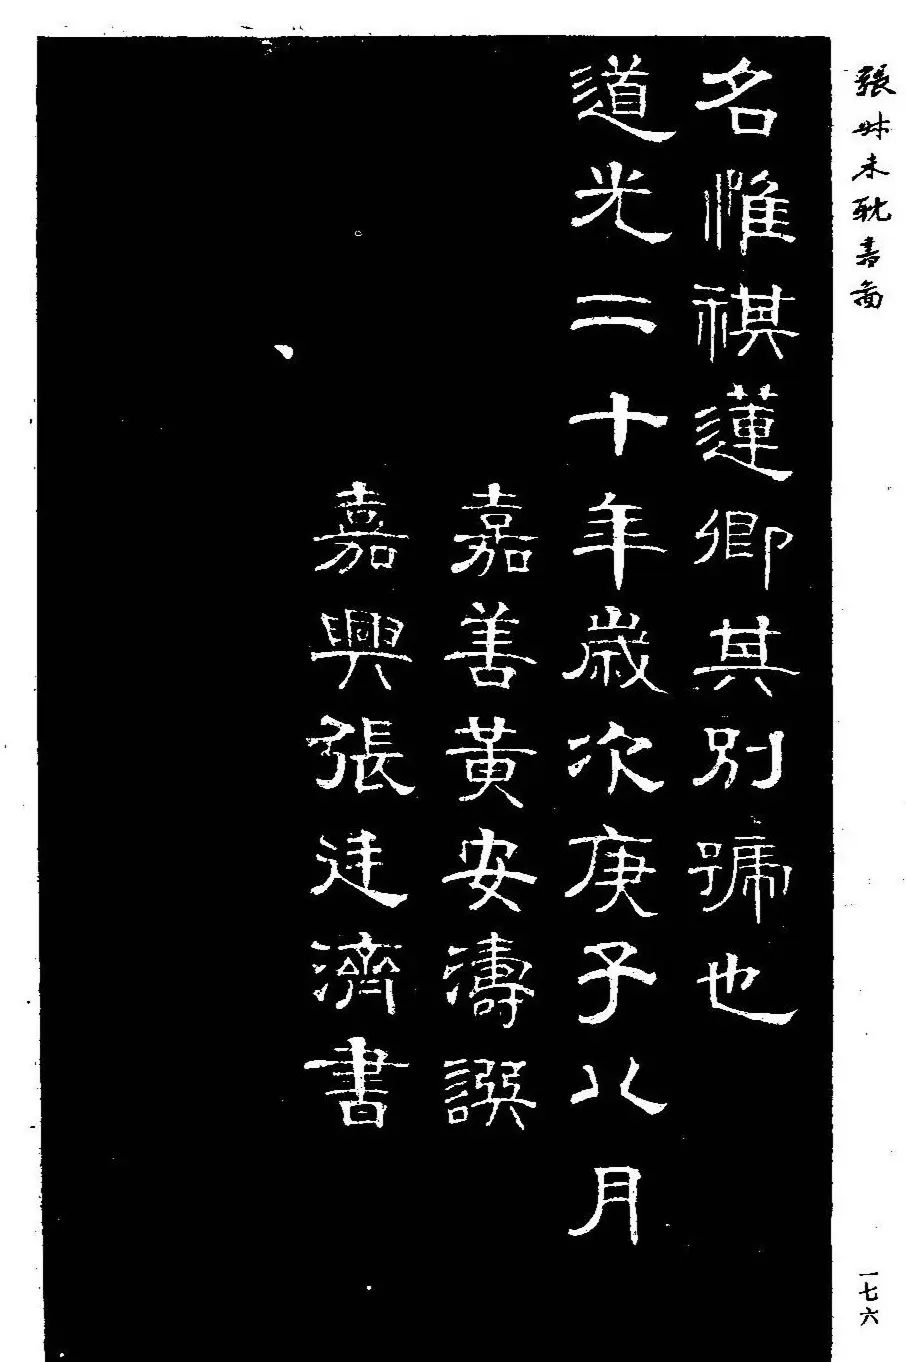 名惟祺蓮卿其別號也
道光二十年歲次庚子八月
嘉善黃安濤譔
嘉興張廷濟書
張叔未耽書圖
一七六